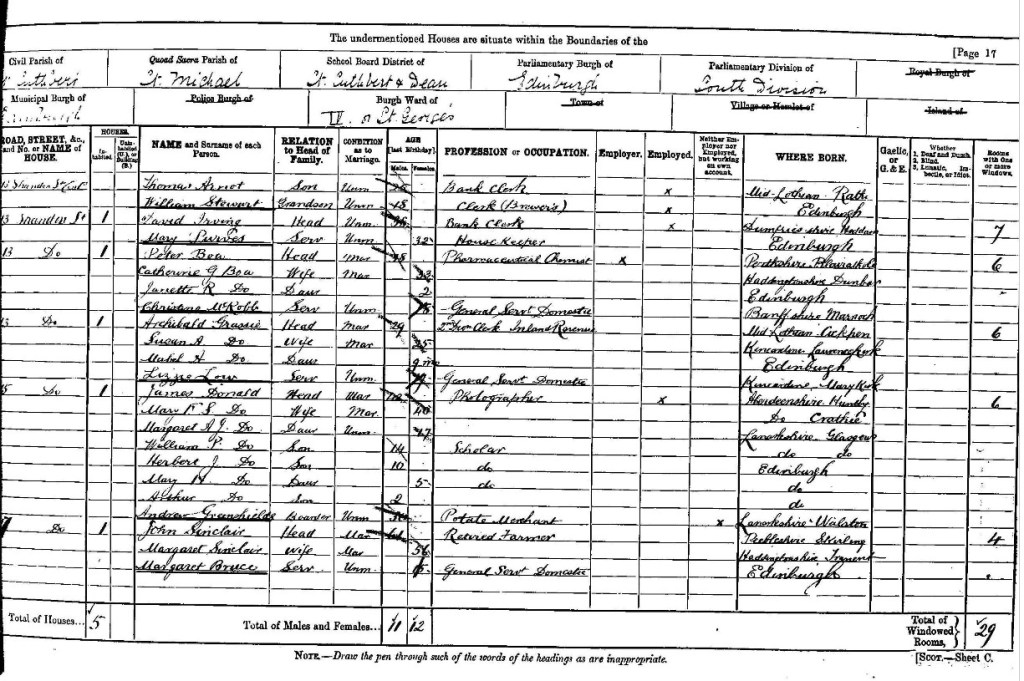 The undermentioned Houses are situate within the Boundaries of the
[Page 17
Civil Parish of
Cuthbert
Quoad Sacra Parish of
St. Michael
School Board District of
St. Cuthbert & Dean
Parliamentary Burgh of
Edinburgh
Parliamentary Division of
South Division
Royal Burgh of
Municipal Burgh of
Edinburgh
Police Burgh of
Burgh Ward of
IV. or St. Georges
Town of
Village or Hamlet of
Island of
ROAD, STREET, &c., and No. or NAME of HOUSE.
HOUSES.
Inhabited.
Uninhabited (U.), or Building (B.)
NAME and Surname of each Person.
RELATION to Head of Family.
CONDITION as to Marriage.
AGE [last Birthday].
Males. Females.
PROFESSION or OCCUPATION.
Employer.
Employed.
Neither Employer nor Employed, but working on own account.
WHERE BORN.
Gaelic, or G. & E.
Whether 1. Deaf and Dumb 2. Blind. 3. Lunatic, Imbecile, or Idiot.
Rooms with One or more Windows.
13 Shandon St Thomas Arnot Son Unm Bank Clerk x Mid-Lothian Ratho
William Stewart Grandson Unm 15 Clerk (Brewer's) x Edinburgh
13 Shandon St 1 David Irving Head Unm Bank Clerk x 7
Mary Purves Serv Unm 32 House Keeper Edinburgh
13 Do 1 Peter Boa Head Mar Pharmaceutical Chemist x Perthshire 6
Catherine G Boa Wife Mar Haddingtonshire Dunbar
Janette R Do Daur 2 Edinburgh
Christina McRobb Serv Unm 18 General Servt Domestic Banffshire Marnoch
Do 1 Archibald Grassie Head Mar 29 Clerk Inland Revenue Mid Lothian Cockpen 6
Susan A Do Wife Mar 25 Kincardine Laurencekirk
Mabel H Do Daur 9 mo Edinburgh
Lizzie Low Serv Unm. 19 General Servt Domestic Kincardine Marykirk
15 Do 1 James Donald Head Mar Photographer x Aberdeenshire Huntly 6
Mary Do Wife Mar 40 Do Crathie
Margaret A J. Do Daur Unm 17 Lanarkshire Glasgow
William P. Do Son 14 Scholar do do
Herbert J. Do Son 10 do Edinburgh
Mary Do Daur 5 do do
Arthur Do Son 2 do
Andrew Greenshields Boarder Unm Potato Merchant x Lanarkshire Walston
Do 1 John Sinclair Head Mar Retired Farmer Peebleshire Skirling 4
Margaret Sinclair Wife Mar 56 Haddingtonshire Tranent
Margaret Bruce Serv Unm. 15 General Servt Domestic Edinburgh
Total of Houses... 5
Total of Males and Females... 11 12
Total of Windowed Rooms, 29
NOTE.—Draw the pen through such of the words of the headings as are inappropriate.
[SCOT.—Sheet C.